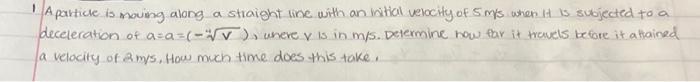 1 A particle is moving along a straight line with an initial velocity of 5 m/s when it is subjected to a
deceleration of a=a=(-²√v), where v is in m/s. Determine how far it travels before it attained
a velocity of 2 m/s. How much time does this take.